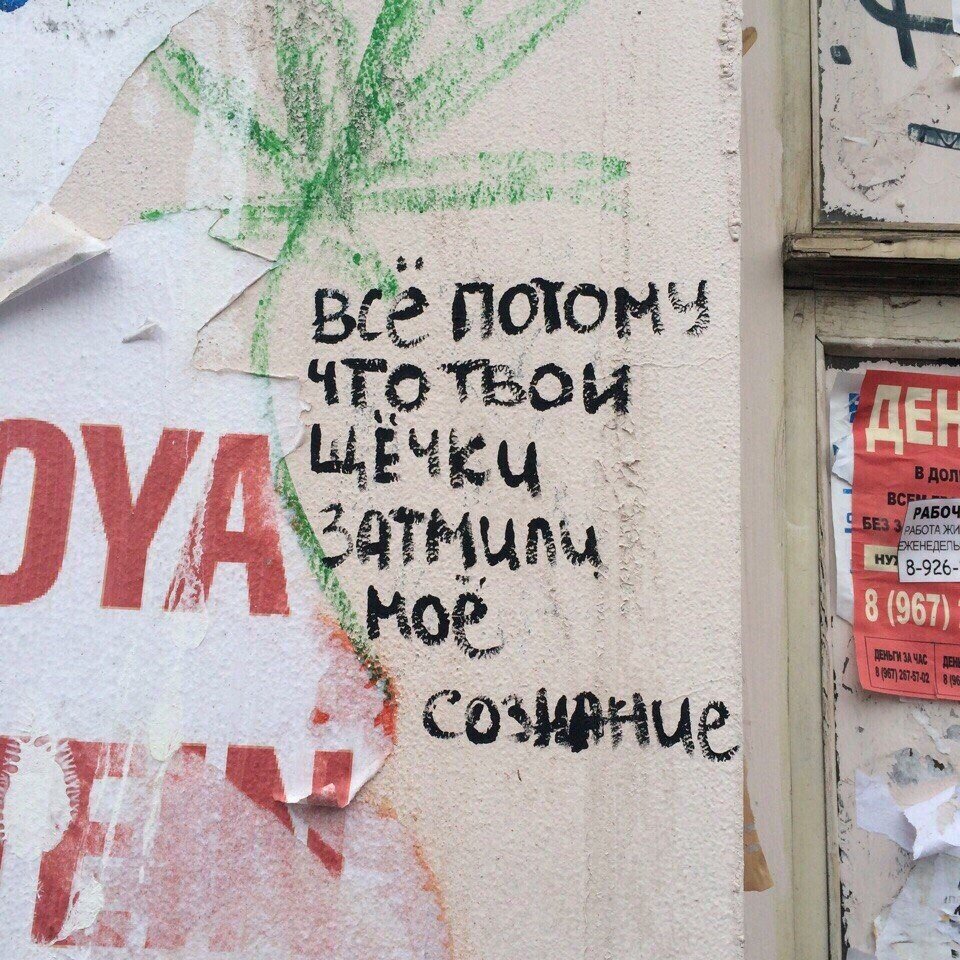 всё потому
что твои
щёчки
затмили
моё
сознание
OYA
EIN
ДЕН
В ДОЛ
ВСЕМ
БЕЗ З
РАБОЧ
РАБОТА ЖИ
ЕЖЕНЕДЕЛЬ
8-926-
8 (967)
ДЕНЬГИ ЗА ЧАС
8 (967) 267-57-02